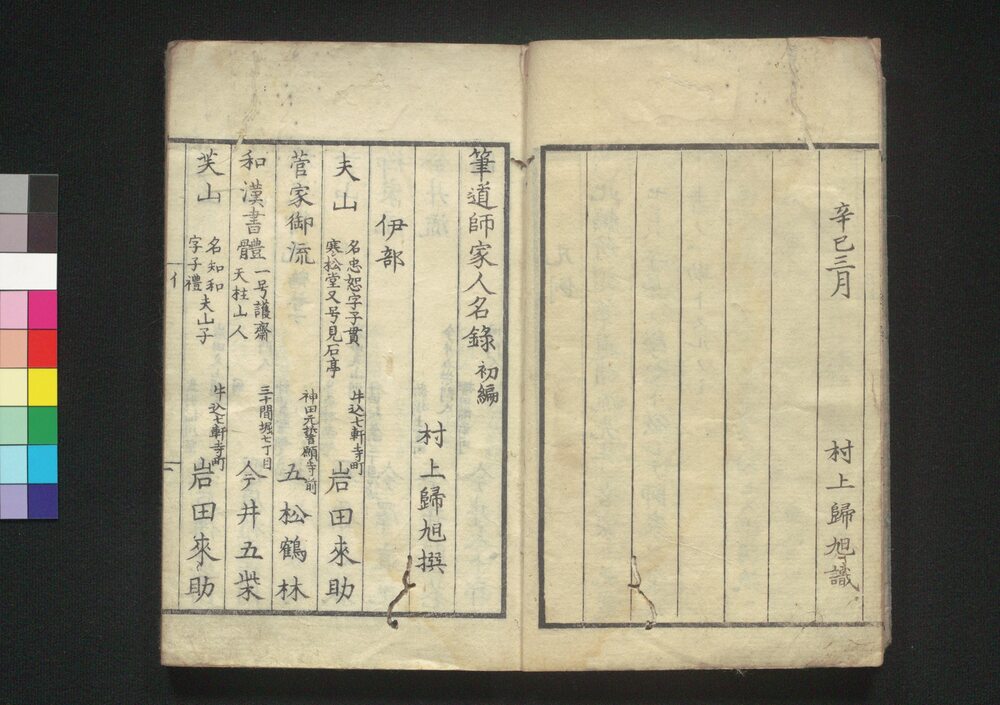 辛巳三月
村上歸旭識
筆道師家人名錄 初編
村上歸旭撰
伊部
夫山 名忠恕字子貫 寒松堂又号見石亭 牛込七軒寺町 岩田來助
菅家御流 神田元誓願寺前 五松鶴林
和漢書體 一号護齋 天柱山人 三十間堀七丁目 今井五柴
芙山 名知和夫山子 字子禮 牛込七軒寺町 岩田來助